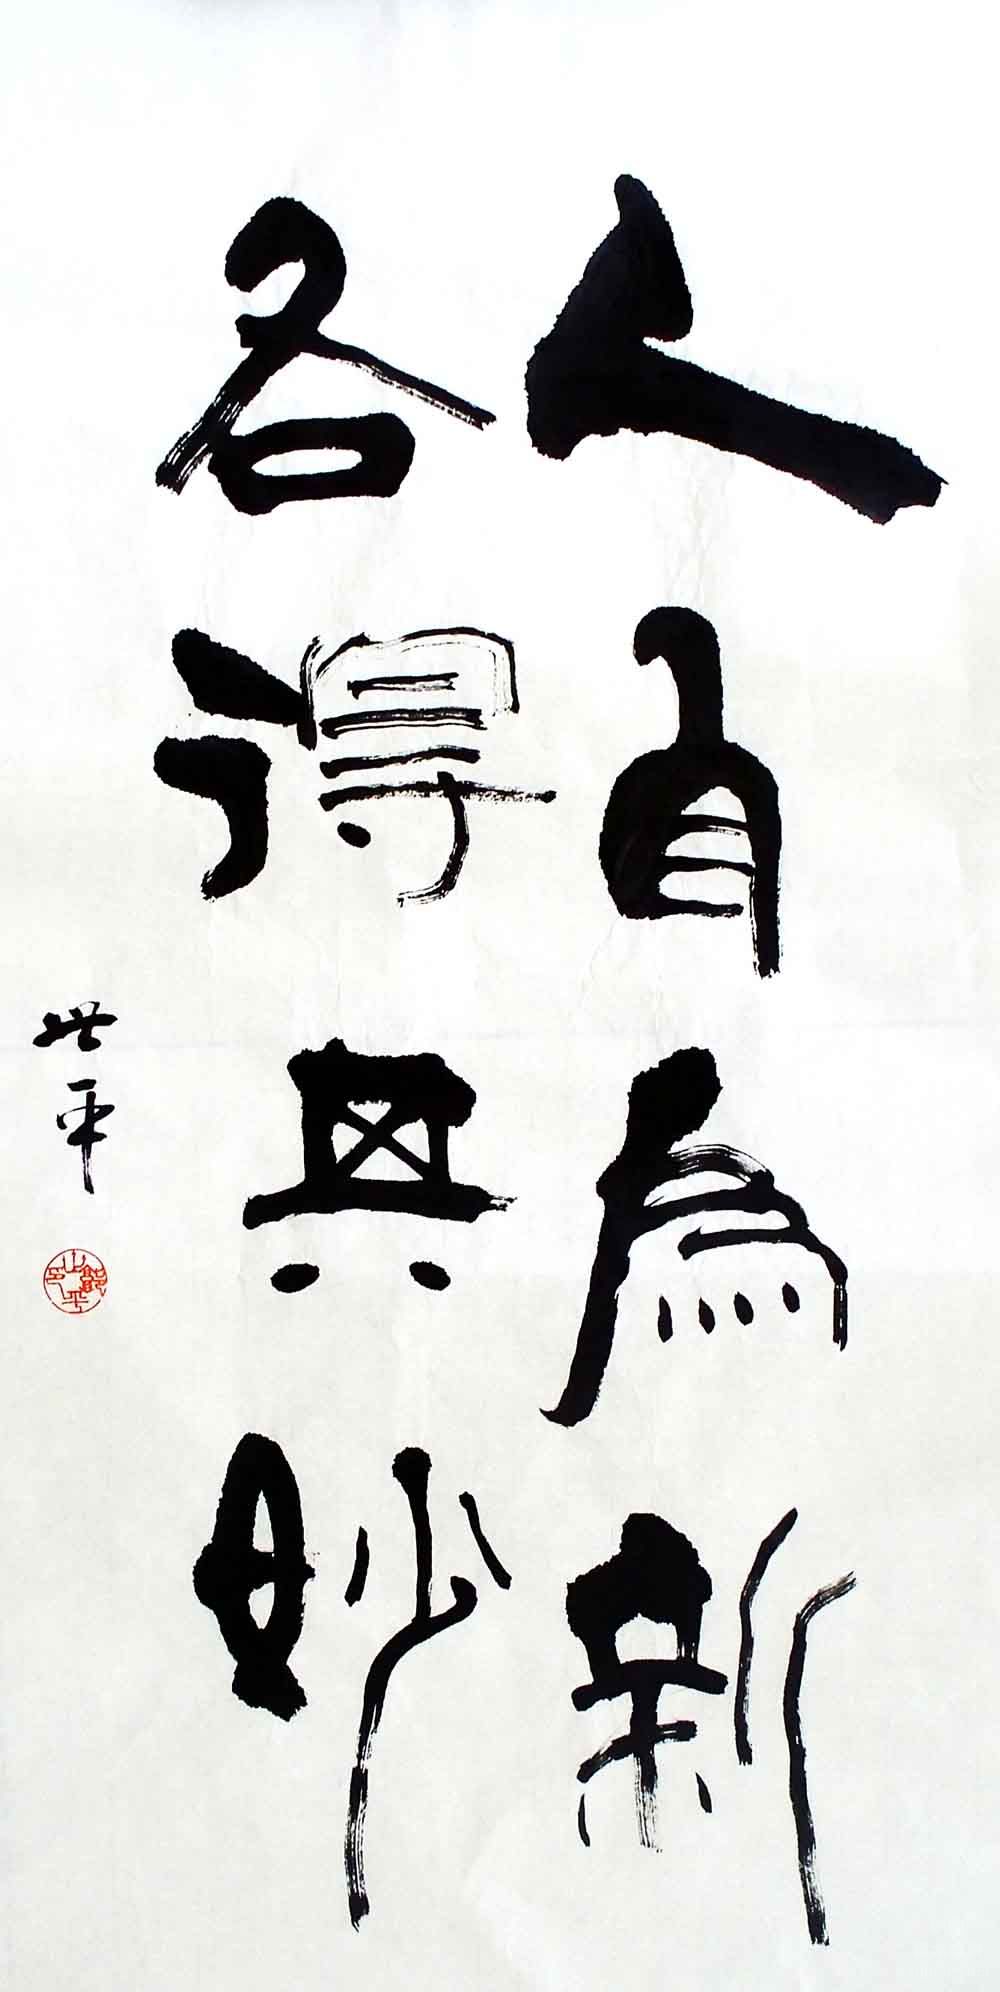 人自為新
各得其妙
世平